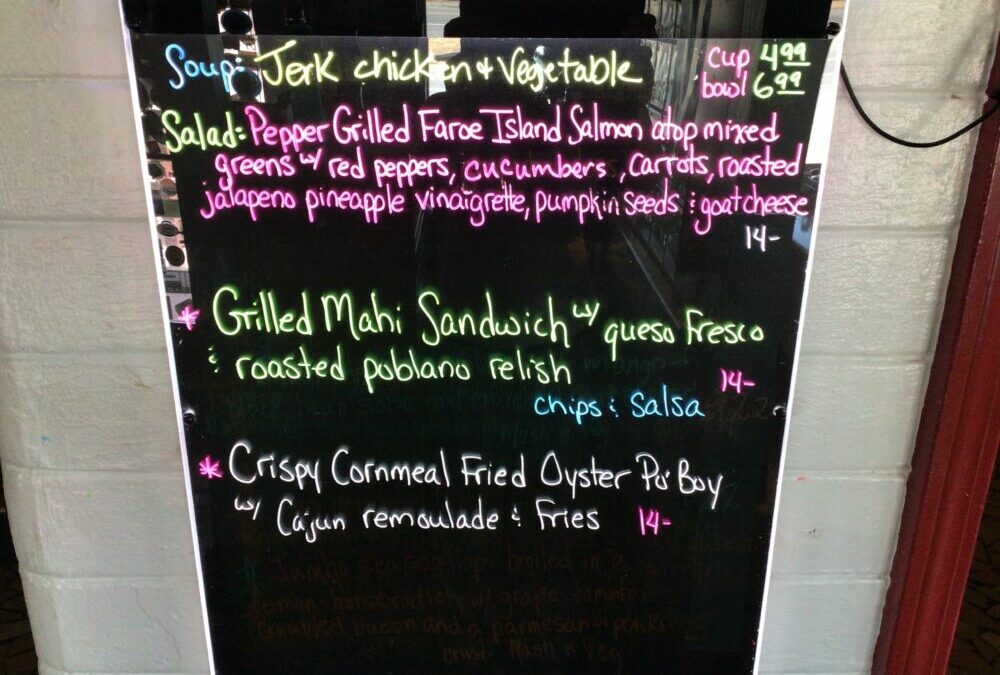 Soup: Jerk chicken & Vegetable cup 4.99
bowl 6.99
Salad: Pepper Grilled Faroe Island Salmon atop mixed
greens w/ red peppers, cucumbers, carrots, roasted
jalapeno pineapple vinaigrette, pumpkin seeds & goat cheese
14-
* Grilled Mahi Sandwich w/ queso Fresco
& roasted poblano relish
14-
chips & Salsa
* Crispy Cornmeal Fried Oyster Po' Boy
w/ Cajun remoulade & Fries 14-
broiled in a
w/ grape tomato,
crumbled bacon and a parmesan